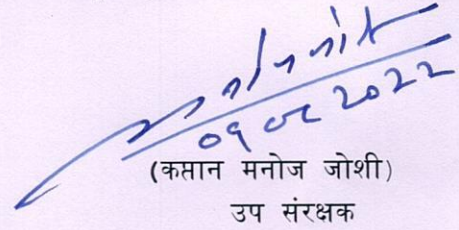 09 02 2022
(कप्तान मनोज जोशी)
उप संरक्षक